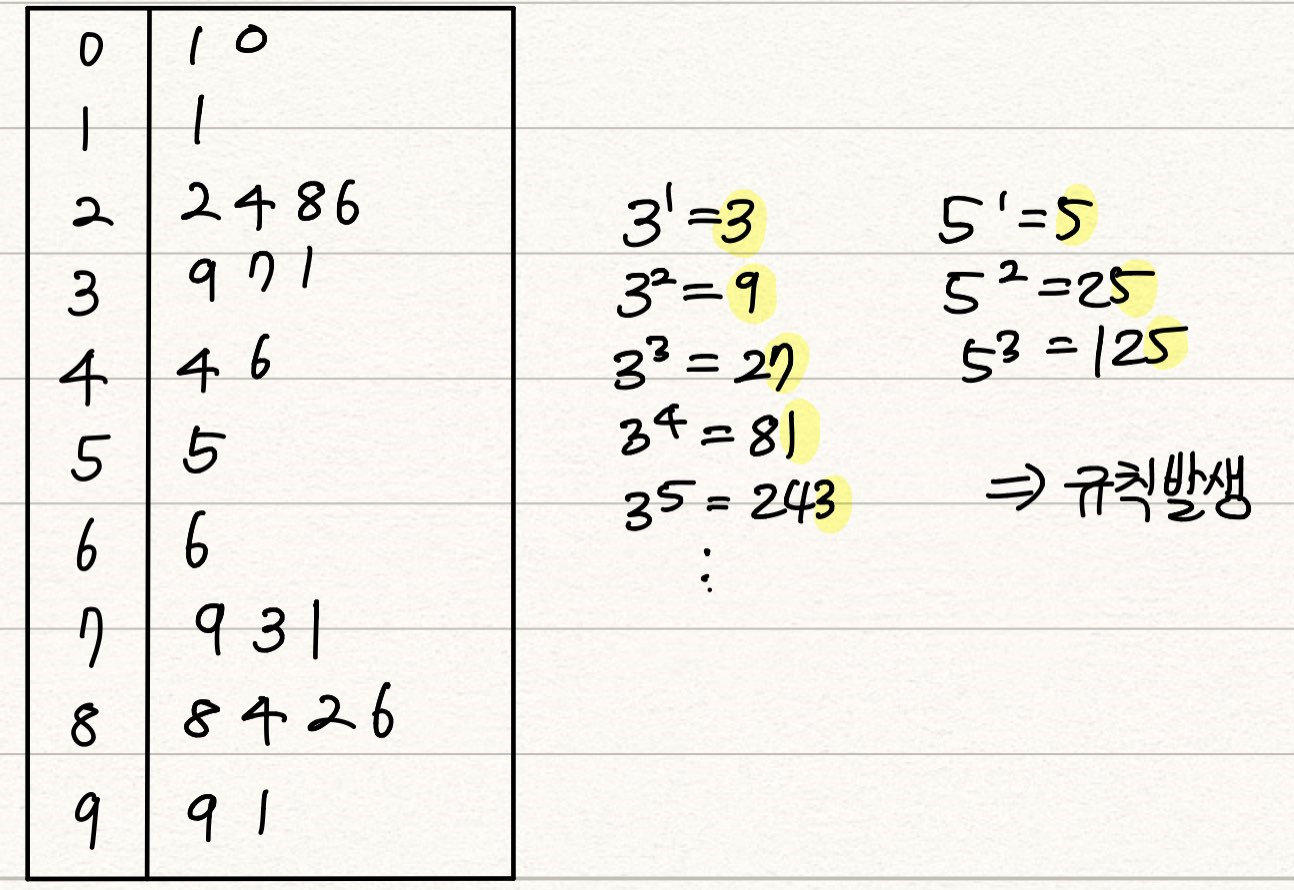 0 1 0
1 1
2 2 4 8 6
3 9 7 1
4 4 6
5 5
6 6
7 9 3 1
8 8 4 2 6
9 9 1
3¹=3
3²=9
3³=27
3⁴=81
3⁵=243
⋮
5¹=5
5²=25
5³=125
⇒ 규칙발생